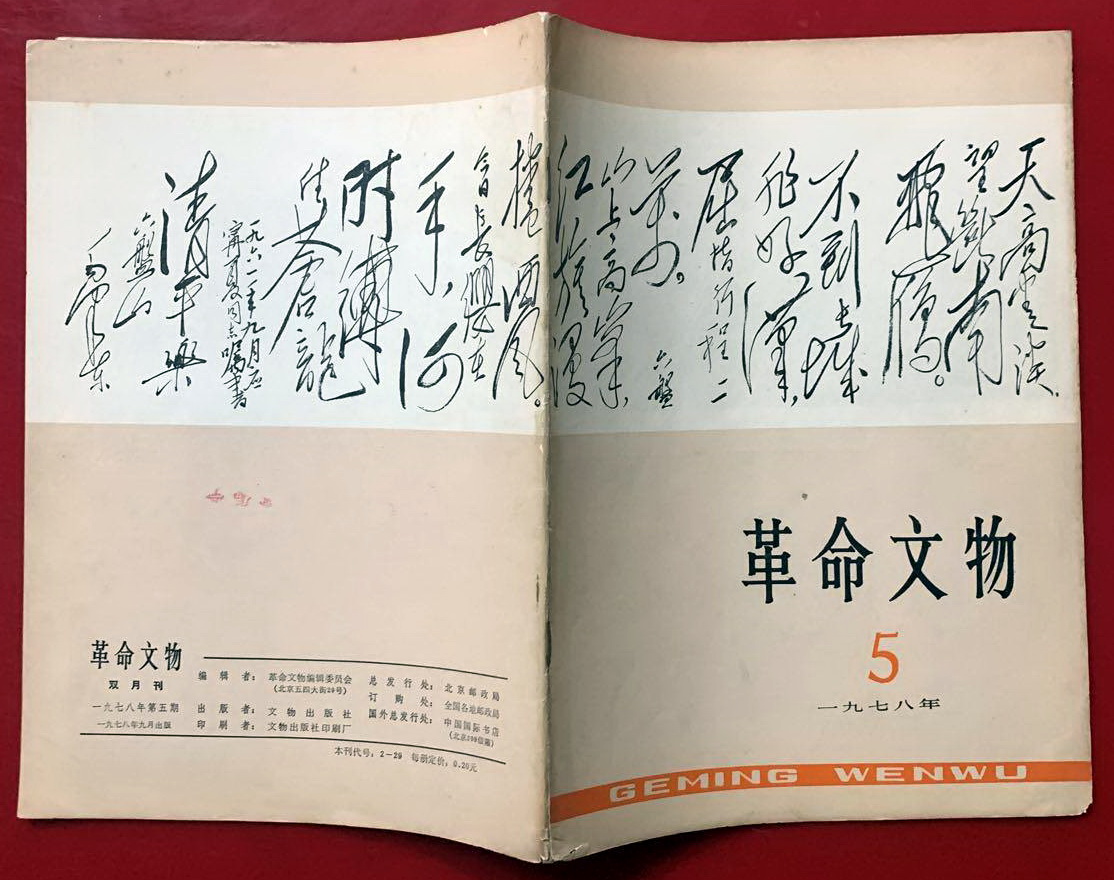 天高雲淡,
望斷南
飛雁。
不到長城
非好漢,
屈指行程二
萬。
六盤
山上高峯,
紅旗漫
捲西風。
今日長纓在
手,何
時縛
住蒼龍
一九六一年九月应
寧夏同志嘱書
清平樂
六盤山
毛澤東
革命文物
5
一九七八年
GEMING WENWU
革命文物
双月刊
一九七八年第五期
一九七八年九月出版
编辑者：革命文物编辑委员会
(北京五四大街29号)
出版者：文物出版社
印刷者：文物出版社印刷厂
总发行处：北京邮政局
订购处：全国各地邮政局
国外总发行处：中国国际书店
(北京399信箱)
本刊代号：2-29 每册定价：0.20元